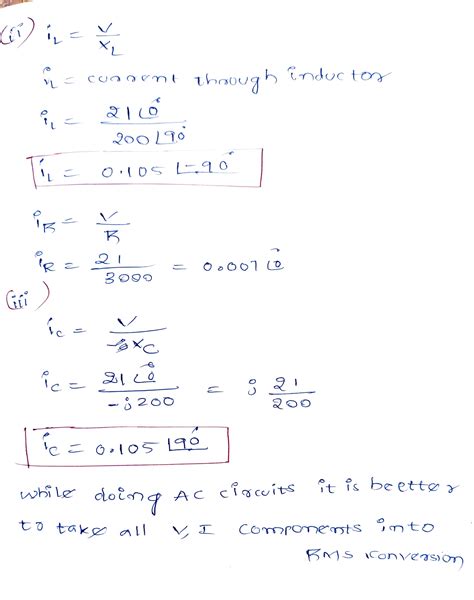 (ii) i_L = V / X_L
i_L = current through inductor
i_L = 21∠0° / 200∠90°
i_L = 0.105 ∠-90°
i_R = V / R
i_R = 21 / 3000 = 0.007∠0°
(iii)
i_C = V / -jX_C
i_C = 21∠0° / -j200 = j 21 / 200
i_C = 0.105 ∠90°
while doing AC circuits it is beetter
to take all V, I components into
RMS conversion